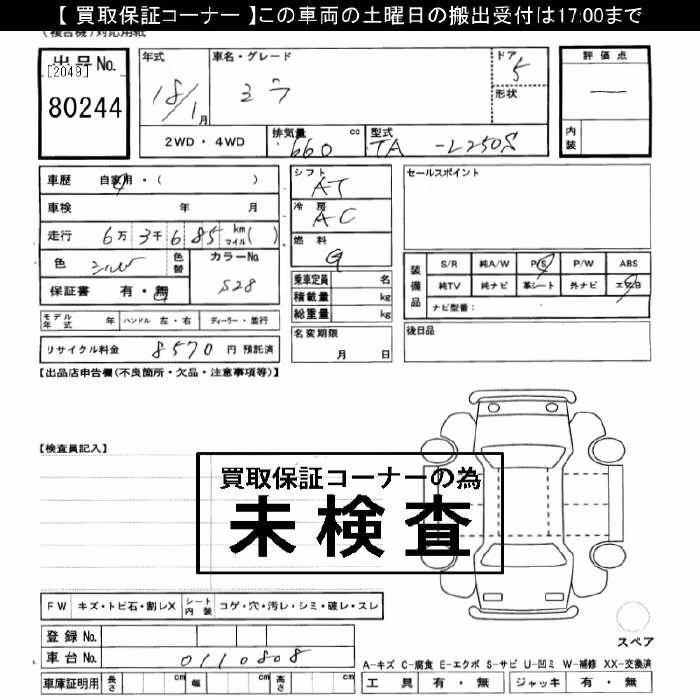 【 買取保証コーナー 】この車両の土曜日の搬出受付は17:00まで
(複合機)対応用紙
出品No.
[2049]
80244
年式
18/1月
車名・グレード
ミラ
ドア
5
形状
評価点
—
内装
2WD・4WD
排気量 660 cc
型式 TA -L250S
車歴 自家用・( )
車検 年 月
走行 6万3千685 km マイル( )
色 シルバ
色替
カラーNo.
S28
保証書 有・無
シフト
AT
冷房
AC
燃料
G
乗車定員 名
積載量 kg
総重量 kg
セールスポイント
装備品
S/R 純A/W P/S P/W ABS
純TV 純ナビ 革シート 外ナビ エアB
ナビ型番:
モデル年式 年 ハンドル 左・右 ディーラー・並行
名変期限
月 日
後日品
リサイクル料金 8570 円 預託済
【出品店申告欄(不良箇所・欠品・注意事項等)】
【検査員記入】
買取保証コーナーの為
未検査
FW キズ・トビ石・割レX シート内装 コゲ・穴・汚レ・シミ・破レ・スレ
スペア
登録No.
車台No. 0110808
A-キズ C-腐食 E-エクボ S-サビ U-凹ミ W-補修 XX-交換済
車庫証明用 長さ cm 幅 cm 高さ cm
工具 有・無 ジャッキ 有・無